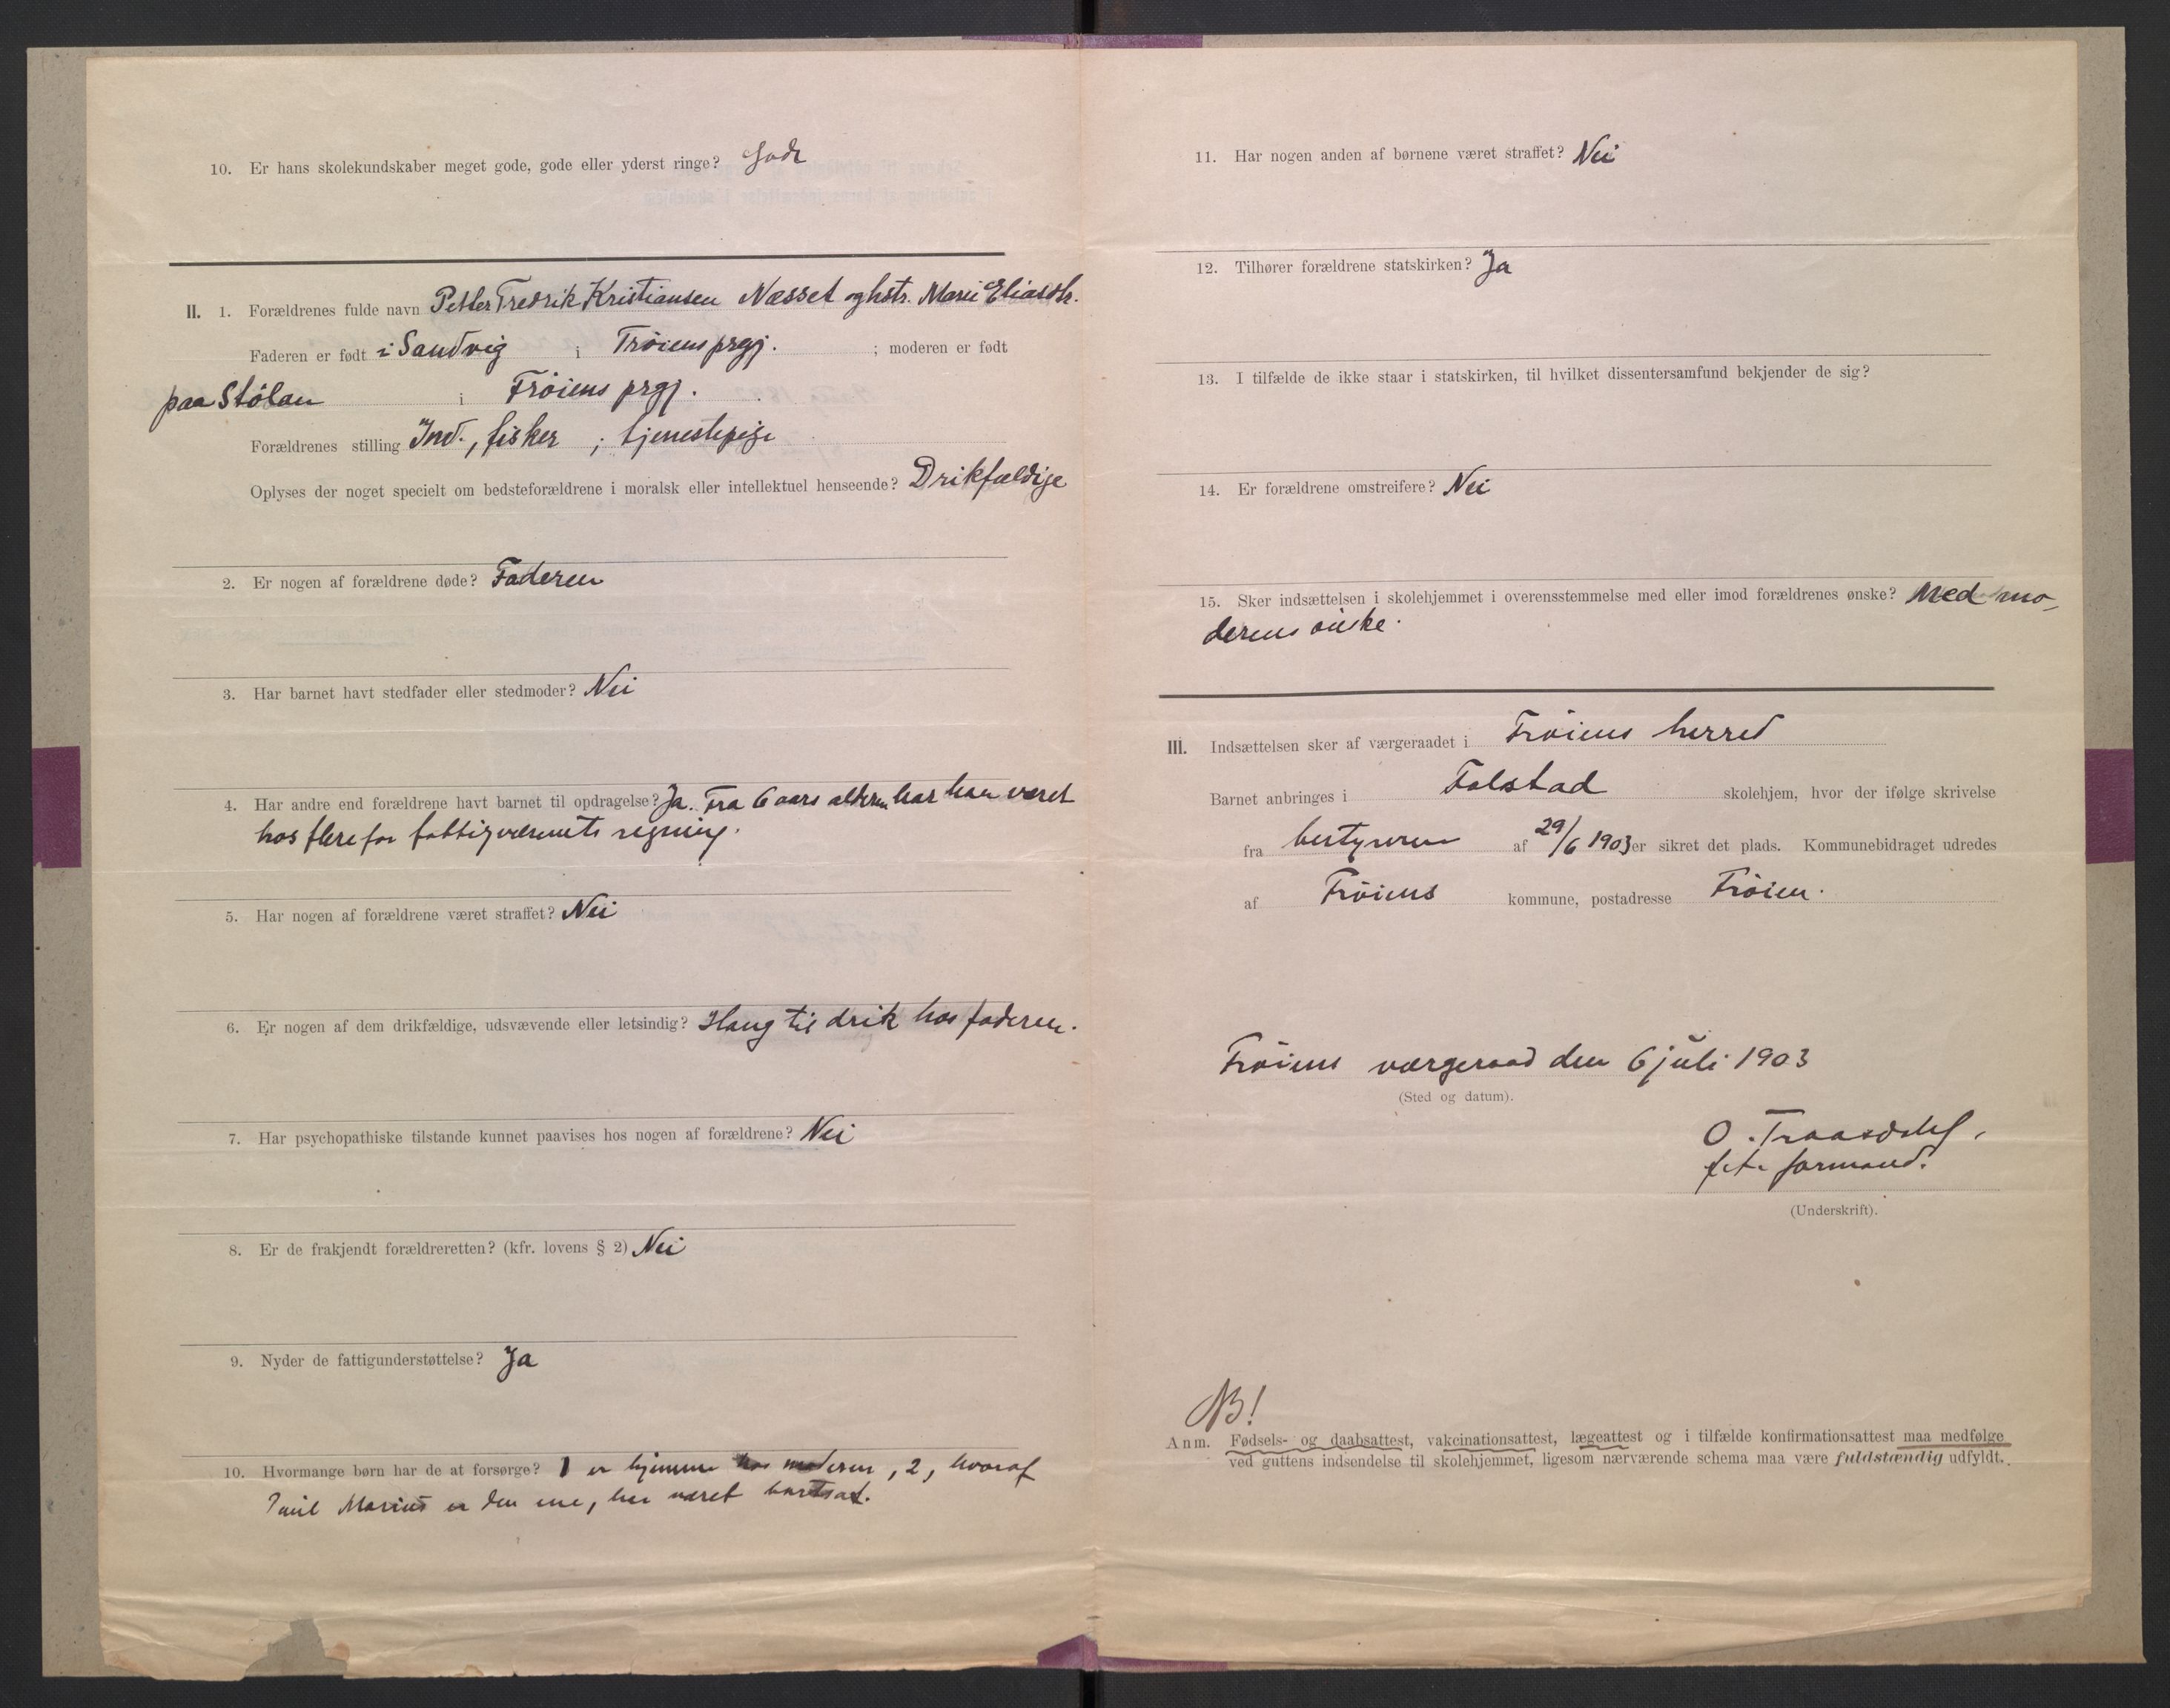 10. Er hans skolekundskaber meget gode, gode eller yderst ringe? Gode
II. 1. Forældrenes fulde navn Petter Fredrik Kristiansen Næsset og hstr. Marie Eliasdtr.
Faderen er født i Sandvig i Frøiens prgj. ; moderen er født
paa Stølan i Frøiens prgj.
Forældrenes stilling Ind., fisker ; tjenestepige
Oplyses der noget specielt om bedsteforældrene i moralsk eller intellektuel henseende? Drikfældige
2. Er nogen af forældrene døde? Faderen
3. Har barnet havt stedfader eller stedmoder? Nei
4. Har andre end forældrene havt barnet til opdragelse? Ja. Fra 6 aars alderen har han været
hos flere for fattigvæsenets regning.
5. Har nogen af forældrene været straffet? Nei
6. Er nogen af dem drikfældige, udsvævende eller letsindig? Hang til drik hos faderen.
7. Har psychopathiske tilstande kunnet paavises hos nogen af forældrene? Nei
8. Er de frakjendt forældreretten? (kfr. lovens § 2) Nei
9. Nyder de fattigunderstøttelse? Ja
10. Hvormange børn har de at forsørge? 1 er hjemme hos moderen, 2, hvoraf
Emil Marius er den ene, har været bortsat.
11. Har nogen anden af børnene været straffet? Nei
12. Tilhører forældrene statskirken? Ja
13. I tilfælde de ikke staar i statskirken, til hvilket dissentersamfund bekjender de sig?
14. Er forældrene omstreifere? Nei
15. Sker indsættelsen i skolehjemmet i overensstemmelse med eller imod forældrenes ønske? Med mo-
derens ønske.
III. Indsættelsen sker af værgeraadet i Frøiens herred
Barnet anbringes i Falstad skolehjem, hvor der ifølge skrivelse
fra bestyreren af 29/6 1903 er sikret det plads. Kommunebidraget udredes
af Frøiens kommune, postadresse Frøien.
Frøiens værgeraad den 6 juli 1903
(Sted og datum).
O.
f.t. formand.
(Underskrift).
NB!
Anm. Fødsels- og daabsattest, vakcinationsattest, lægeattest og i tilfælde konfirmationsattest maa medfølge
ved guttens indsendelse til skolehjemmet, ligesom nærværende schema maa være fuldstændig udfyldt.